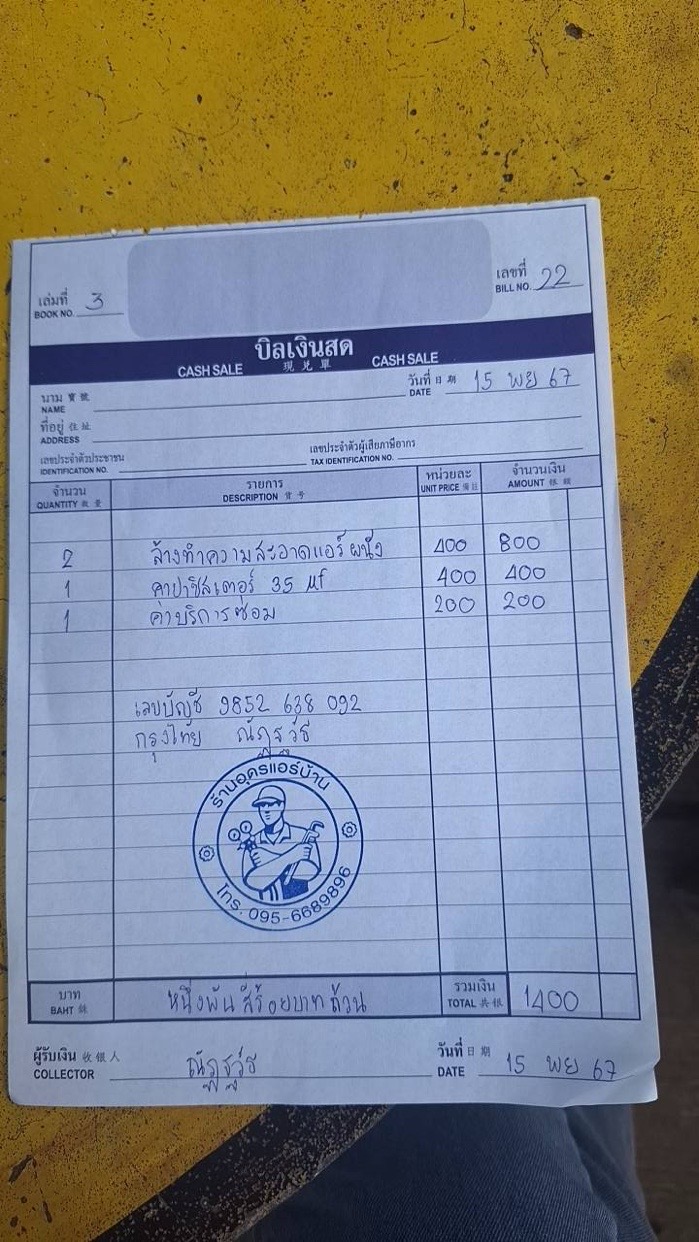 เล่มที่ 3 เลขที่ 22
BOOK NO. BILL NO.
บิลเงินสด
CASH SALE 現兌單 CASH SALE
นาม 寶號 วันที่ 日期 15 พย 67
NAME DATE
ที่อยู่ 住址
ADDRESS
เลขประจำตัวประชาชน เลขประจำตัวผู้เสียภาษีอากร
IDENTIFICATION NO. TAX IDENTIFICATION NO.
จำนวน รายการ หน่วยละ จำนวนเงิน
QUANTITY 數量 DESCRIPTION 貨號 UNIT PRICE AMOUNT
2 ล้างทำความสะอาดแอร์ ผนัง 400 800
1 คาปาซิสเตอร์ 35 µf 400 400
1 ค่าบริการซ่อม 200 200
เลขบัญชี 9852 638 092
กรุงไทย ณัฏฐวัธ
ร้านอุดรแอร์บ้าน
โทร. 095-6689896
บาท หนึ่งพันสี่ร้อยบาทถ้วน รวมเงิน 1400
BAHT 銖 TOTAL 共銀
ผู้รับเงิน 收銀人 วันที่ 日期
COLLECTOR DATE 15 พย 67